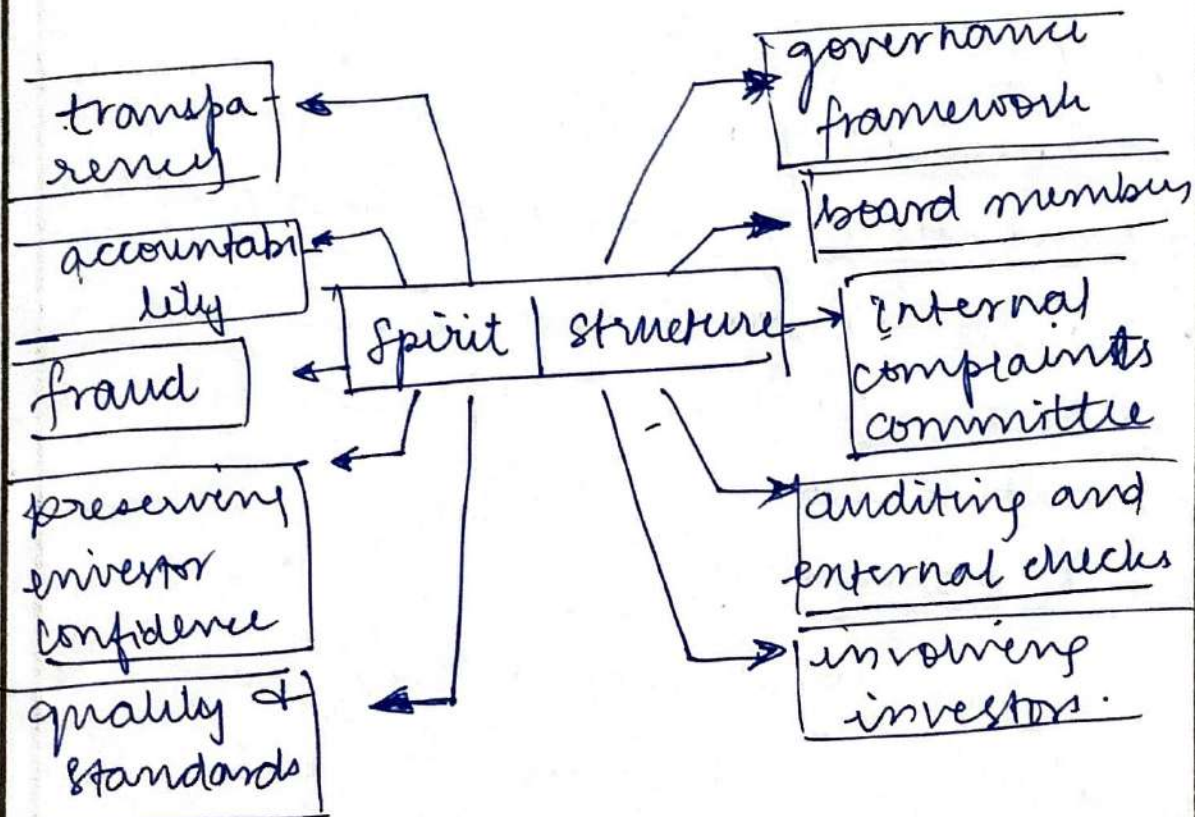 transpa-
rency
accountabi
lity
fraud
preserving
enivestor
confidence
quality &
standards
Spirit | Structure
governance
framework
board members
internal
complaints
committee
auditing and
external checks
involving
investors.